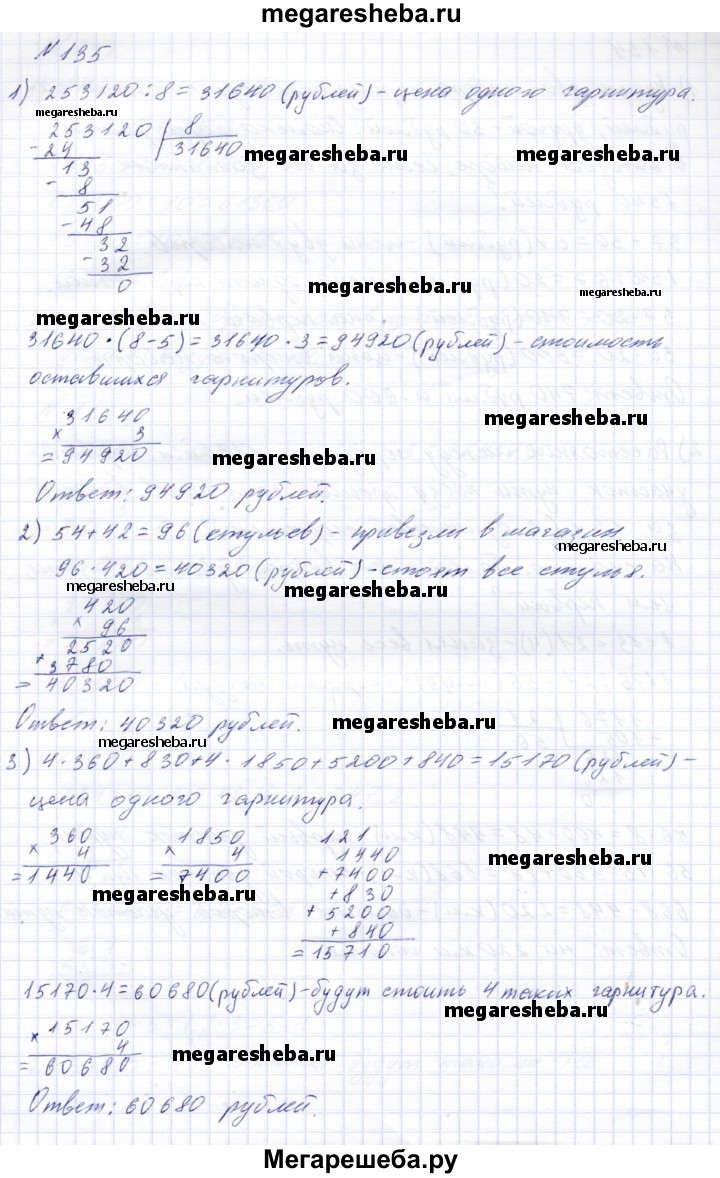 megaresheba.ru
№ 135
1) 253120 : 8 = 31640 (рублей) - цена одного гарнитура.
megaresheba.ru
253120 8
- 24 31640
megaresheba.ru megaresheba.ru
13
- 8
51
- 48
32
- 32
0
megaresheba.ru megaresheba.ru
megaresheba.ru
31640 · (8-5) = 31640 · 3 = 94920 (рублей) - стоимость
оставшихся гарнитуров.
31640
× 3
megaresheba.ru
= 94920
megaresheba.ru
Ответ: 94920 рублей.
2) 54+42 = 96 (стульев) - привезли в магазин
megaresheba.ru
96 · 420 = 40320 (рублей) - стоят все стулья.
megaresheba.ru megaresheba.ru
420
× 96
2520
+ 3780
= 40320
Ответ: 40320 рублей.
megaresheba.ru
megaresheba.ru
3) 4 · 360 + 830 + 4 · 1850 + 5200 + 840 = 15170 (рублей) -
цена одного гарнитура.
360 1850 121
× 4 × 4 1440
= 1440 = 7400 + 7400
megaresheba.ru
megaresheba.ru
+ 830
+ 5200
+ 840
= 15710
15170 · 4 = 60680 (рублей) - будут стоить 4 таких гарнитура.
megaresheba.ru
15170
× 4
megaresheba.ru
= 60680
Ответ: 60680 рублей.
Мегарешеба.ру